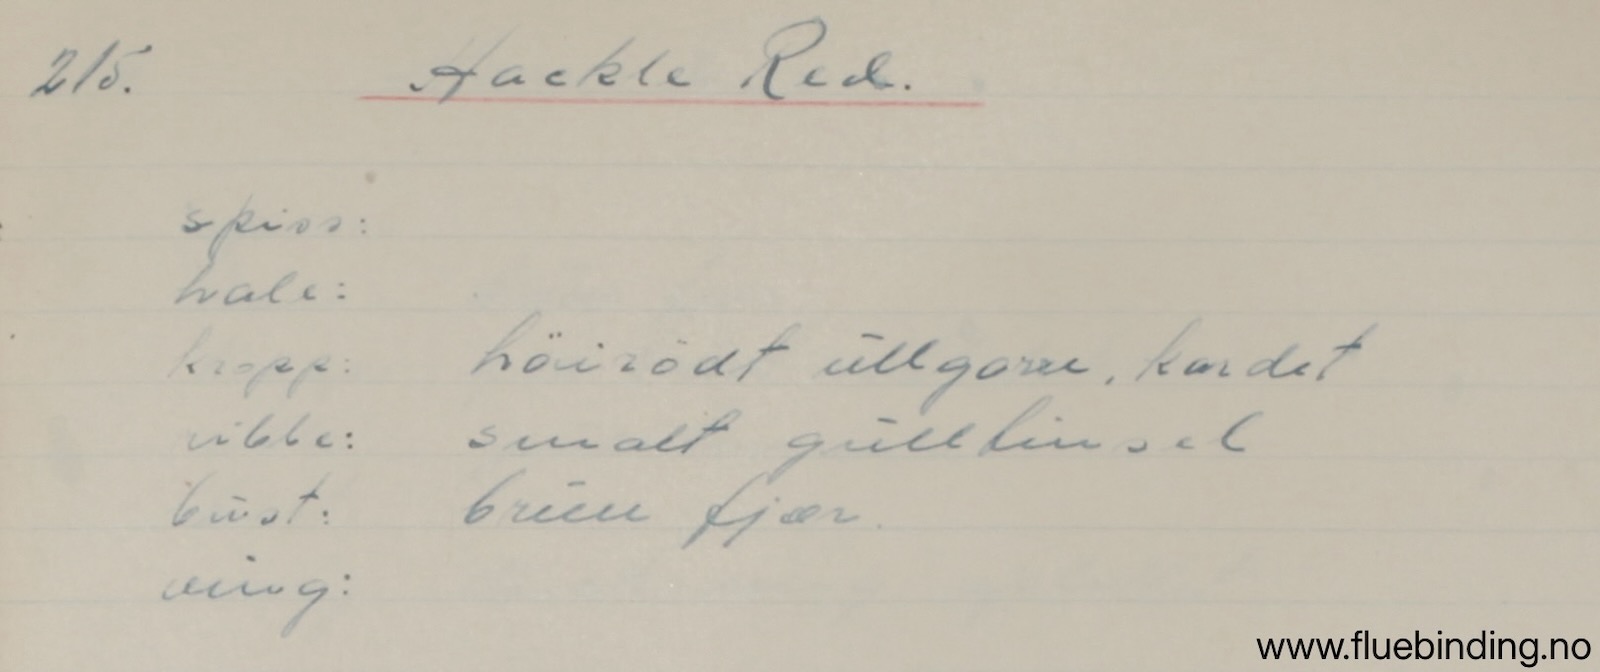 215. Hackle Red.
spiss:
hale:
kropp: höirödt ullgarn, kardet
ribbe: smalt gulltinsel
bust: brun fjær.
ving:
www.fluebinding.no